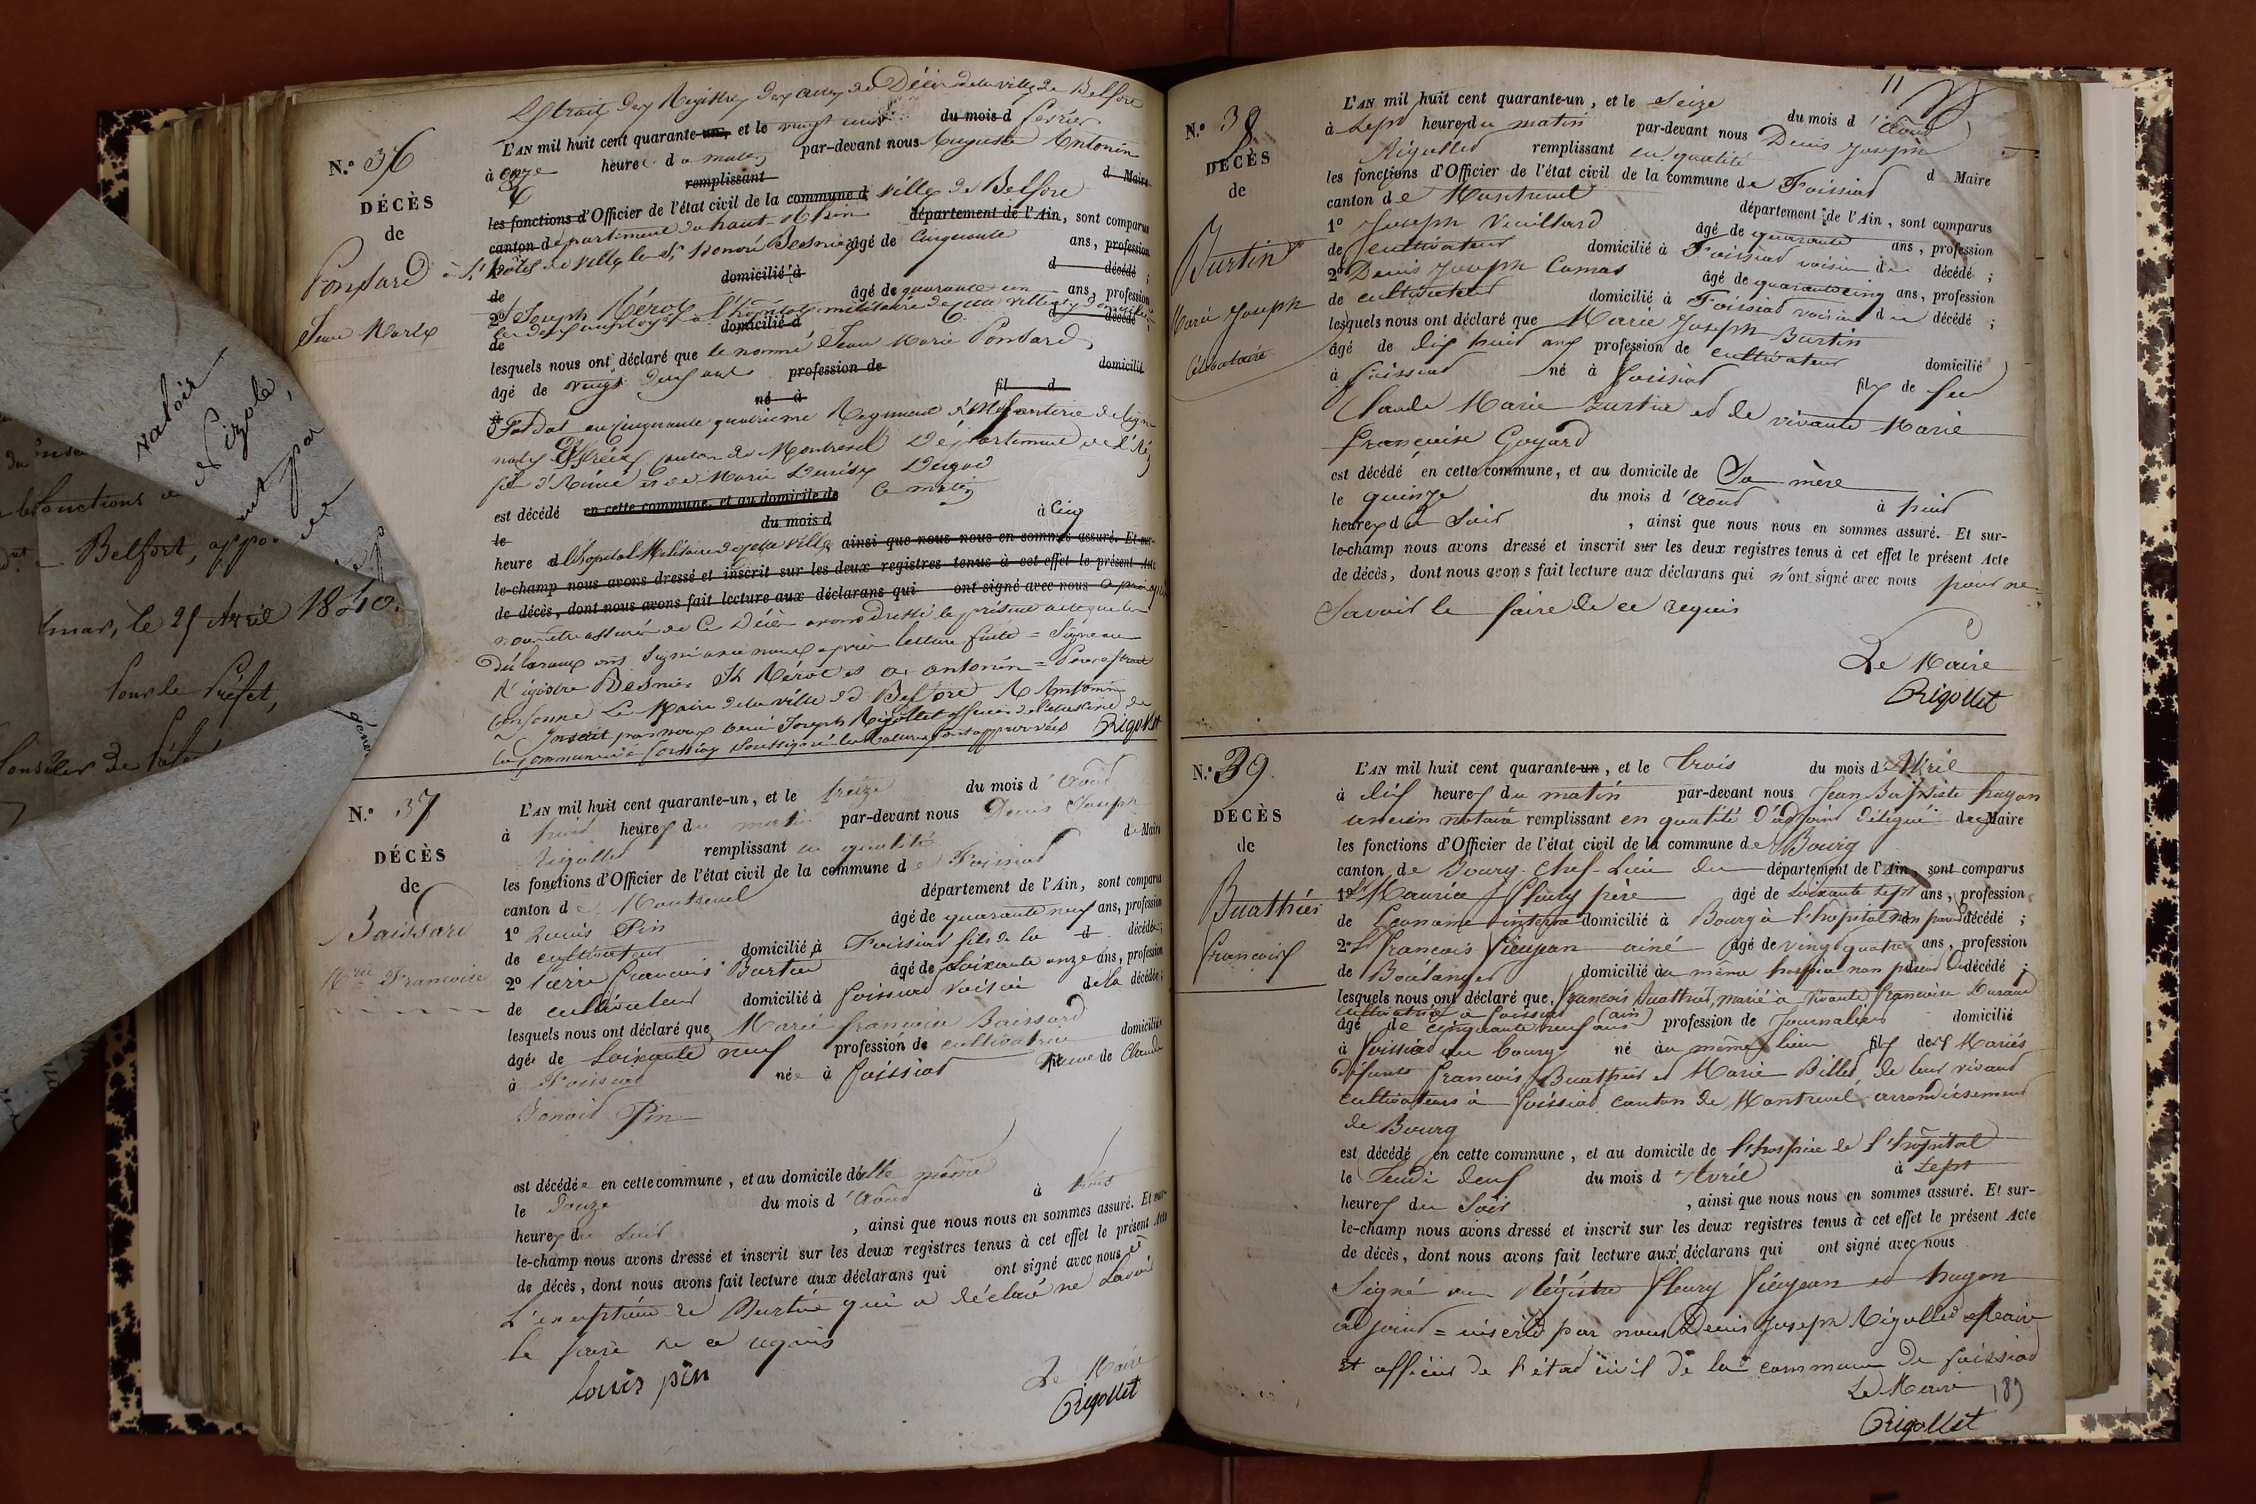 du
valoir
Nizole,
fonctions
Belfort,
par
le 25 Avril 1840.
Pour le Préfet,
Extrait des Registres des actes de Décès de la ville de Belfort
N.º 36
DÉCÈS
de
Ponsard
Jean Marie
L'AN mil huit cent quarante-un, et le vingt du mois d février
à onze heure d u matin par-devant nous Auguste Antonin
remplissant d Maire
les fonctions d'Officier de l'état civil de la commune d ville de Belfort
canton d département du haut Rhin département de l'Ain, sont comparus
à l'hôtel de ville le Sr honoré Besnier âgé de Cinquante ans, profession
de domicilié à d décédé ;
2º Joseph Mérot âgé de quarante un ans, profession
de domicilié à d décédé ;
lesquels nous ont déclaré que le nommé Jean Marie Ponsard
âgé de vingt deux ans profession de domicilié
à né à fil d
Soldat au cinquante quatrième Régiment d'infanterie de ligne
canton de Montrevel Département de l'Ain
fils d'Aimé et de Marie Denise
est décédé en cette commune, et au domicile de Ce matin
le du mois d à Cinq
heure à l'hopital Militaire de cette ville ainsi que nous nous en sommes assuré. Et sur-
le-champ nous avons dressé et inscrit sur les deux registres tenus à cet effet le présent Acte
de décès, dont nous avons fait lecture aux déclarans qui ont signé avec nous
nous être assuré de Ce Décès avons dressé le présent acte que les
déclarants ont Signé avec nous après lecture faite = Signé au
Régistre Besnier Jh Mérot et A. antonin = Pour extrait
conforme Le Maire de la ville de Belfort A Antonin
Inscrit par nous Denis Joseph Rigollet officier de l'état civil de
la Commune de foissiat soussigné les ratures sont approuvées Rigollet
N.º 37
DÉCÈS
de
Baissard
Mrie Françoise
L'AN mil huit cent quarante-un, et le treize du mois d'Aoud
à huid heures du matin par-devant nous Denis Joseph
Rigollet remplissant en qualité de Maire
les fonctions d'Officier de l'état civil de la commune de Foissiad
canton de Montrevel département de l'Ain, sont comparus
1º Louis Pin âgé de quarante neuf ans, profession
de cultivateur domicilié à Foissiad fils de la d décédée;
2º Pierre François Burtin âgé de soixante onze ans, profession
de cultivateur domicilié à foissiad voisin de la décédée;
lesquels nous ont déclaré que Marie françoise Baissard
âgée de soixante neuf profession de cultivatrice domiciliée
à Foissiad née à foissiad veuve de Claude
Benoid Pin
est décédée en cette commune, et au domicile d'elle même
le douze du mois d'Aoud à
heures du soir , ainsi que nous nous en sommes assuré. Et sur-
le-champ nous avons dressé et inscrit sur les deux registres tenus à cet effet le présent Acte
de décès, dont nous avons fait lecture aux déclarans qui ont signé avec nous à
L'exception de Burtin qui a déclaré ne savoir
le faire de ce requis
louis pin
Le Maire
Rigollet
11
N.º 38
DÉCÈS
de
Burtin
Marie Joseph
Célibataire
L'AN mil huit cent quarante-un, et le Seize du mois d'Aoud
à Sept heures du matin par-devant nous Denis Joseph
Rigollet remplissant en qualité d Maire
les fonctions d'Officier de l'état civil de la commune de Foissiad
canton de Montrevel département de l'Ain, sont comparus
1º Joseph Vuillard âgé de quarante ans, profession
de cultivateur domicilié à Foissiad voisin du décédé ;
2º Denis Joseph Camas âgé de quarantecinq ans, profession
de cultivateur domicilié à Foissiad voisin du décédé ;
lesquels nous ont déclaré que Marie Joseph Burtin
âgé de dix huid ans profession de cultivateur domicilié
à foissiad né à foissiad fils de feu
Claude Marie Burtin et de vivante Marie
françoise Goyard
est décédé en cette commune, et au domicile de Sa mère
le quinze du mois d'Aoud à huid
heures du Soir , ainsi que nous nous en sommes assuré. Et sur-
le-champ nous avons dressé et inscrit sur les deux registres tenus à cet effet le présent Acte
de décès, dont nous avons fait lecture aux déclarans qui n'ont signé avec nous pour ne
Savoir le faire de ce requis
Le Maire
Rigollet
N.º 39
DÉCÈS
de
Buathier
François
L'AN mil huit cent quarante-un, et le trois du mois d'Avril
à dix heures du matin par-devant nous Jean Baptiste hugon
ancien notaire remplissant en qualité d'adjoint délégué du Maire
les fonctions d'Officier de l'état civil de la commune de Bourg
canton de Bourg Chef-Lieu du département de l'Ain, sont comparus
1º Sr Maurice fleury père âgé de soixante sept ans, profession
de Econome interne domicilié à Bourg à l'hopital non parent décédé ;
2º Sr françois Piéujean ainé âgé de vingt quatre ans, profession
de Boulanger domicilié au même hospice non parent du décédé ;
lesquels nous ont déclaré que françois Buathier, marié à vivante françoise Durand
cultivatrice à foissiad (ain)
âgé de cinquante neuf ans profession de Journalier domicilié
à foissiad au bourg né au même lieu fils de s Mariés
défunts françois Buathier et Marie Billet de leur vivant
cultivateurs à foissiad canton de Montrevel arrondissement
de Bourg
est décédé en cette commune, et au domicile de l'hospice de l'hôpital
le Jeudi deux du mois d'Avril à Sept
heures du Soir , ainsi que nous nous en sommes assuré. Et sur-
le-champ nous avons dressé et inscrit sur les deux registres tenus à cet effet le présent Acte
de décès, dont nous avons fait lecture aux déclarans qui ont signé avec nous
Signé au Régistre fleury Piéujean et hugon
adjoint = inscrit par nous Denis Joseph Rigollet Maire
et officier de l'état civil de la commune de foissiad
Le Maire
Rigollet
189